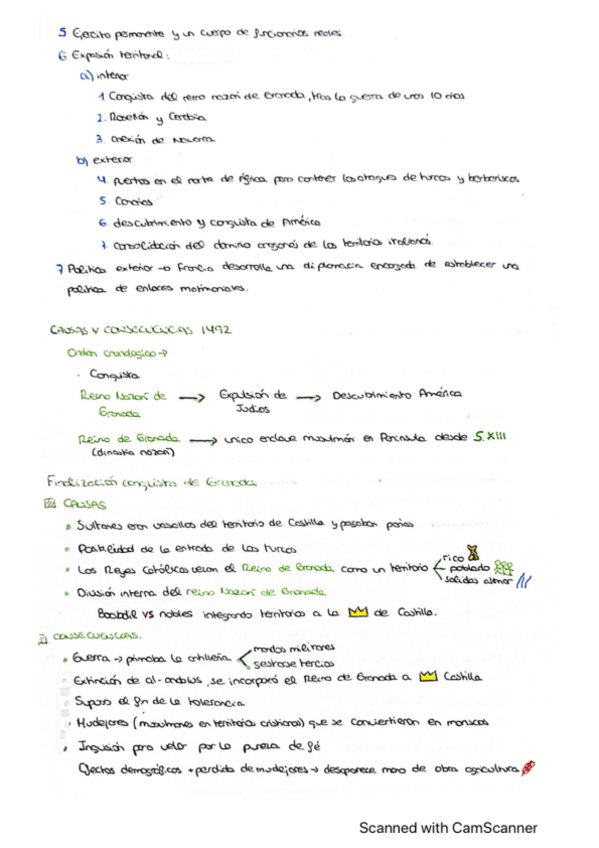 5 Ejército permanente y un cuerpo de funcionarios reales
6 Expansión territorial:
a) interior
1 Conquista del reino nazarí de Granada, tras la guerra de unos 10 años
2. Rosellón y Cerdaña
3. anexión de Navarra
b) exterior
4. puertos en el norte de África para contener los ataques de turcos y berberiscos
5. Canarias
6. descubrimiento y conquista de América
7. consolidación del dominio aragonés de los territorios italianos.
7 Política exterior → Francia desarrolla una diplomacia encargada de establecer una
política de enlaces matrimoniales.
CAUSAS Y CONSECUENCIAS 1492
Orden cronológico →
· Conquista
Reino Nazarí de Granada → Expulsión de Judíos → Descubrimiento América
Reino de Granada → unico enclave musulmán en Península desde S.XIII
(dinastía nazarí)
Finalización conquista de Granada
CAUSAS
• Sultanes eran vasallos del territorio de Castilla y pagaban parias
• Posibilidad de la entrada de los turcos
• Los Reyes Católicos veían el Reino de Granada como un territorio < rico
poblado
salidas al mar
• División interna del reino Nazarí de Granada.
Boabdil VS nobles integrando territorios a la de Castilla.
CONSECUENCIAS.
• Guerra → primaba la artillería < modos militares
tercios
• Extinción de al-andalus, se incorporó el Reino de Granada a Castilla
• Supuso el fin de la tolerancia
• Mudejares (musulmanes en territorio cristiano) que se convirtieron en moriscos
• Inquisión para velar por la pureza de fé
Efectos demográficos + perdida de mudejares → desaparece mano de obra agricultura
Scanned with CamScanner